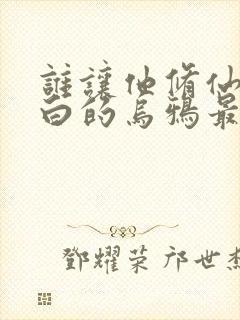 誰讓他脩仙
白的烏鴉最
鄧耀荣 邝世杰